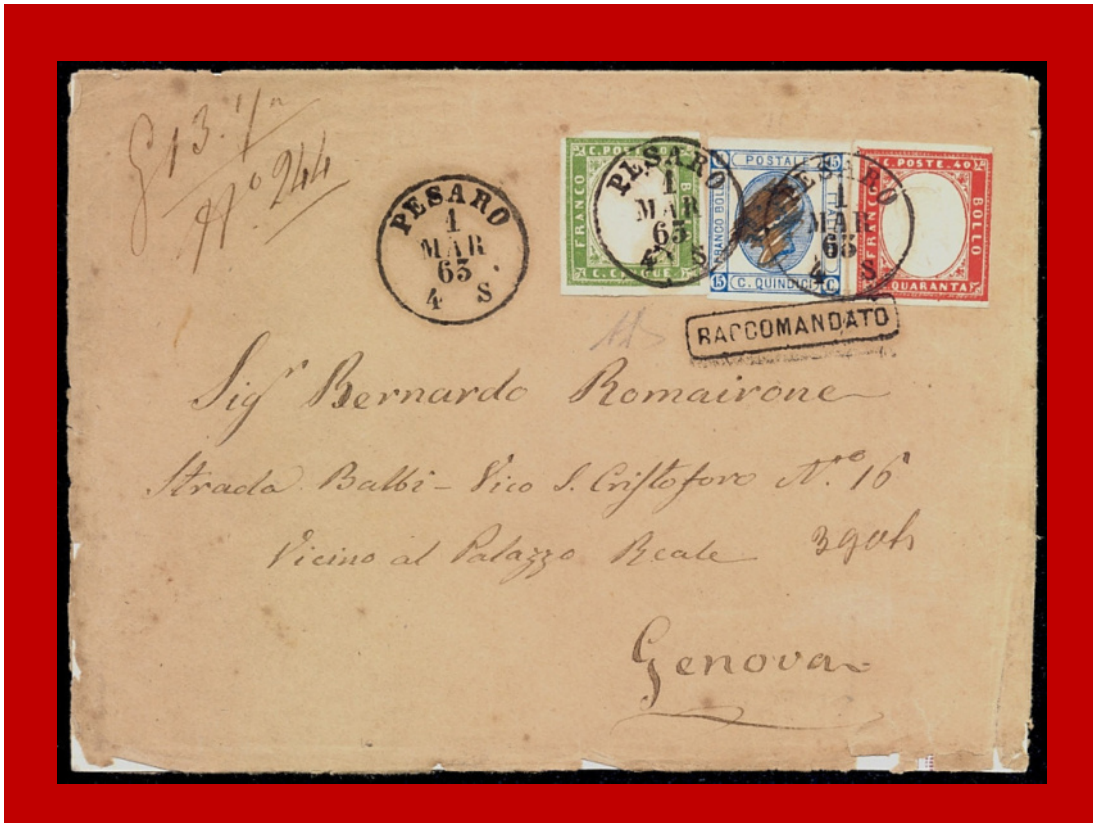 N.º 244
PESARO
1
MAR
63
4 S
C. POSTE
FRANCO
BOLLO
C. CINQUE
PESARO
1
MAR
63
4 S
15 POSTALE 15
FRANCO BOLLO
15 C. QUINDICI
PESARO
1
MAR
63
4 S
C. POSTE. 40
FRANCO
BOLLO
QUARANTA
RACCOMANDATO
Sigr Bernardo Romairone
Strada Balbi - Vico S. Cristoforo N.ro 16
Vicino al Palazzo Reale
Genova